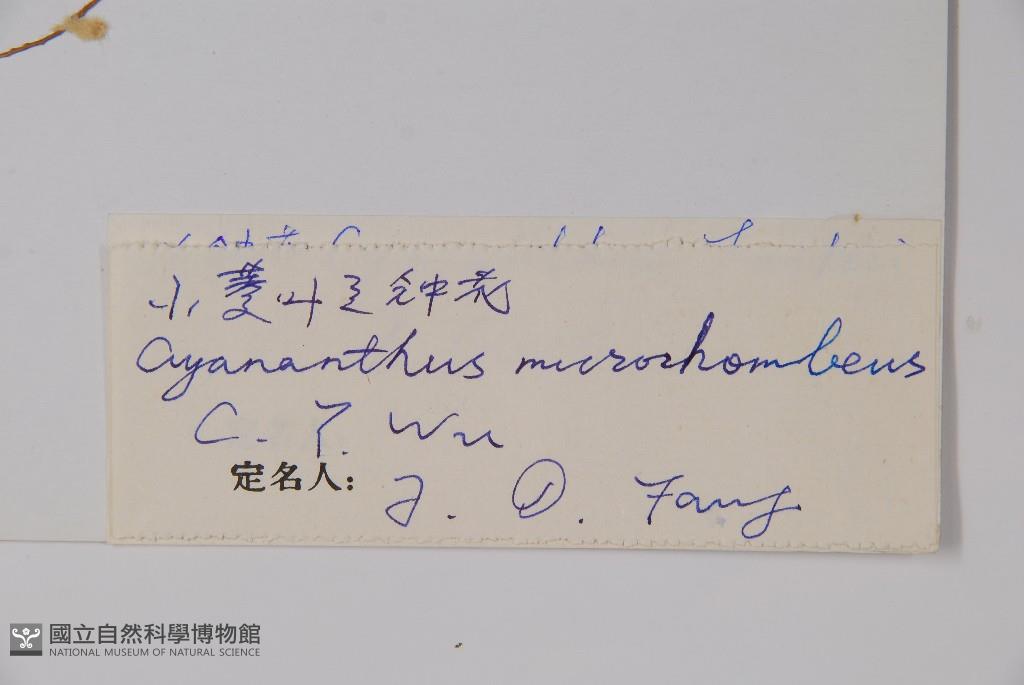 小菱叶兰钟花
Cyananthus microrhombeus
C. Y. Wu
定名人: J. D. Fang
國立自然科學博物館
NATIONAL MUSEUM OF NATURAL SCIENCE